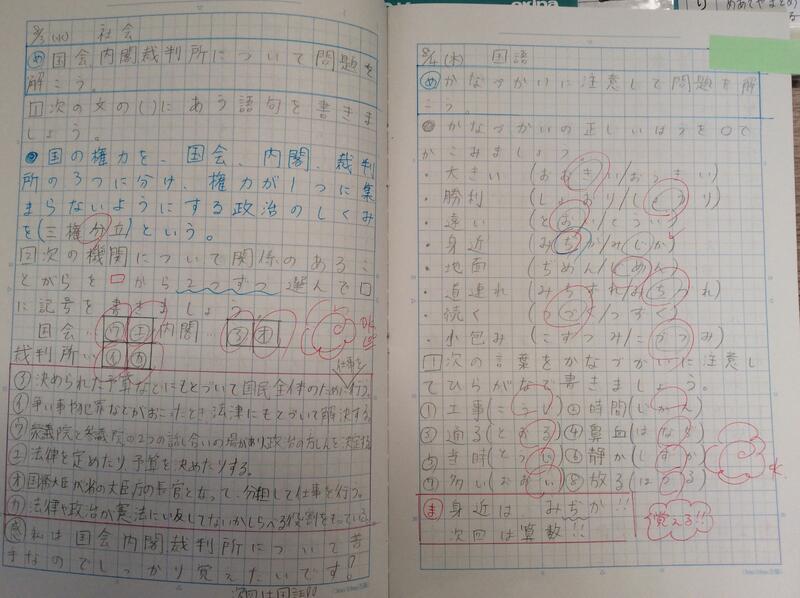 8/3(火) 社会
め 国会内閣裁判所について問題を
解こう。
1 次の文の( )にあう語句を書きま
しょう。
● 国の権力を、国会、内閣、裁判
所の3つに分け、権力が1つに集
まらないようにする政治のしくみ
を(三権分立)という。
2 次の機関について関係のあるこ
とがらを□から2つずつ選んで□
に記号を書きましょう。
国会… ウ エ 内閣… オ
裁判所…
仕事を
決められた予算などにもとづいて国民全体のために行う。
争い事や犯罪などがおこったとき法律にもとづいて解決する。
衆議院と参議院の2つの話し合いの場があり政治の方しんを決定する
法律を定めたり予算を決めたりする。
オ 国務大臣が各大臣庁の長官となって、分担して仕事を行う。
カ 法律や政治が憲法にい反してないかしらべる役割をもっている。
感 私は国会内閣裁判所について苦
手なのでしっかり覚えたいです!
次回は国語!!
8/4(水) 国語
め かなづかいに注意して問題を解
こう。
● かなづかいの正しいほうを○で
かこみましょう
・大きい (おおきい/おうきい)
・勝利 (しょおり/しょうり)
・遠い (とおい/とうい)
・身近 (みぢか/みじか)
・地面 (ちめん/じめん)
・道連れ (みちずれ/みちづれ)
・続く (つづく/つずく)
・小包み (こずつみ/こづつみ)
1 次の言葉をかなづかいに注意し
てひらがなで書きましょう。
① 工事(こうじ) ② 時間(じかん)
③ 通る(とおる) ④ 鼻血(はなぢ)
⑤ 当時(とうじ) ⑥ 静か(しずか)
⑦ 多い(おおい) ⑧ 放る(ほうる)
ま 身近は みぢか!!
次回は算数!!
覚える!!